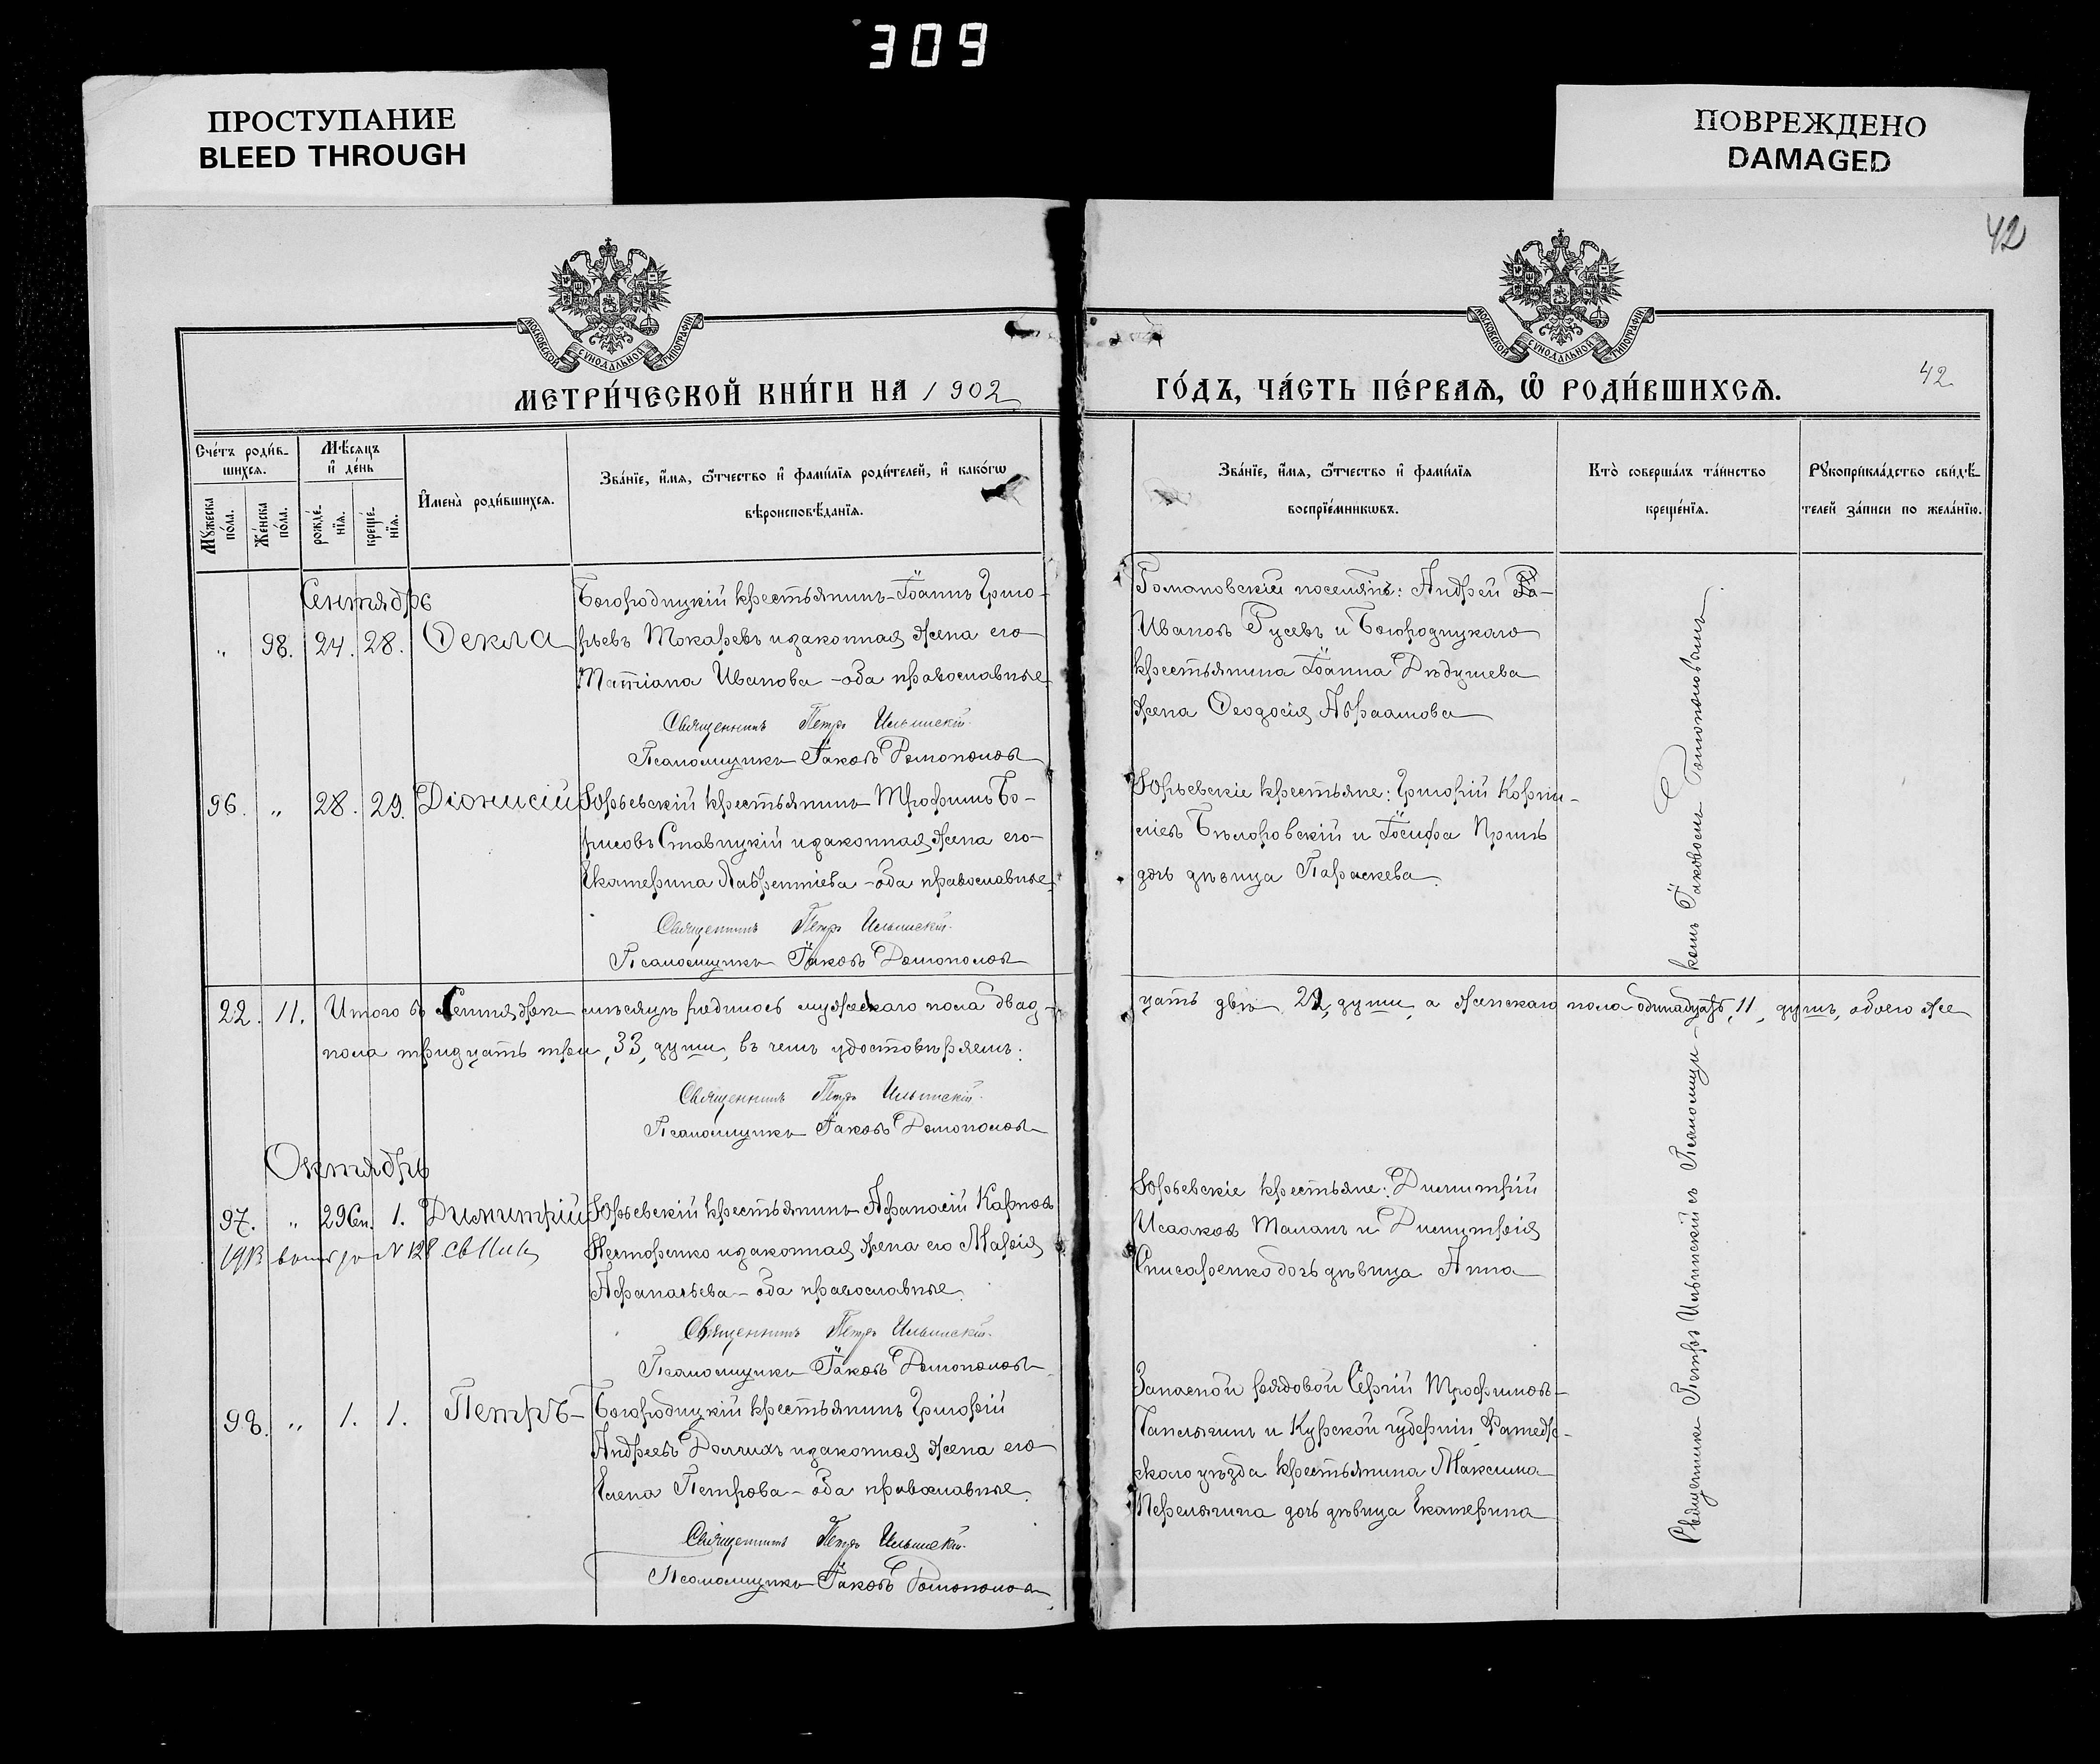 309
ПРОСТУПАНИЕ
BLEED THROUGH
ПОВРЕЖДЕНО
DAMAGED
42
МОСКОВСКОЙ СУНОДАЛЬНОЙ ТИПОГРАФІИ
МОСКОВСКОЙ СУНОДАЛЬНОЙ ТИПОГРАФІИ
МЕТРИ́ЧЕСКОЙ КНИ́ГИ НА 1902
ГО́ДЪ, ЧА́СТЬ ПЕ́РВАѦ, Ѡ РОДИ́ВШИХСѦ.
42
Сче́тъ роди́в-
шихся.
Мѣ́сяцъ
и де́нь
Мꙋжеска по́ла.
Же́нска по́ла.
рожде́нїя.
креще́нїя.
И҆мена̀ роди́вшихся.
Зва́нїе, и҆́мя, ѻ҆́тчество и҆ фами́лїя роди́телей, и҆ како́гѡ
вѣроисповѣ́данїя.
Зва́нїе, и҆́мя, ѻ҆́тчество и҆ фами́лїя
воспрїе́мникѡвъ.
Кто̀ соверша́лъ та́инство
креще́нїя.
Рꙋкоприкла́дство свидѣ́-
телей за́писи по жела́нїю.
Сентябрь
" 98. 24. 28. Ѳекла
Богородицкій крестьянинъ Іоаннъ Григо-
рьевъ Токаревъ и законная жена его
Татіана Иванова - оба православные
Священникъ Петръ Ильинскій.
Псаломщикъ Іаковъ
Романовскій поселянъ: Андрей
Ивановъ Гусевъ и Богородицкаго
крестьянина Іоанна Дѣдушева
жена Ѳеодосія Авраамова
96. " 28. 29. Діонисій
Юрьевскій крестьянинъ Трофимъ Бо-
рисовъ Ставицкій и законная жена его
Екатерина Лаврентіева - оба православные.
Священникъ Петръ Ильинскій.
Псаломщикъ Іаковъ
Юрьевскіе крестьяне: Григорій Корни-
ліевъ Бѣлоровскій и Іосифа
дочь дѣвица Параскева.
22. 11. Итого въ Сентябрѣ мѣсяцѣ родилось мужескаго пола двад-
цать двѣ 22, души, а женскаго пола одинадцать, 11, душъ, обоего же
пола тридцать три, 33, души, въ чемъ удостовѣряемъ:
Священникъ Петръ Ильинскій.
Псаломщикъ Іаковъ
Октябрь
97. " 29 Сен. 1. Димитрій
1913 № 128
Юрьевскій крестьянинъ Аѳанасій Карповъ
Нестеренко и законная жена его Марѳа
Аѳанасьева - оба православные.
Священникъ Петръ Ильинскій.
Псаломщикъ Іаковъ
Юрьевскіе крестьяне: Димитрій
Исааковъ Таланъ и Димитрія
Снисаренко дочь дѣвица Анна
98. " 1. 1. Петръ
Богородицкій крестьянинъ Григорій
Андреевъ Долгихъ и законная жена его
Елена Петрова - оба православные.
Священникъ Петръ Ильинскій.
Псаломщикъ Іаковъ
Запасной рядовой Сергій Трофимовъ
и Курской губерніи Фатеж-
скаго уѣзда крестьянина Максима
Перелыгина дочь дѣвица Екатерина
Священникъ Петръ Ильинскій съ Псаломщи-
комъ Іаковомъ